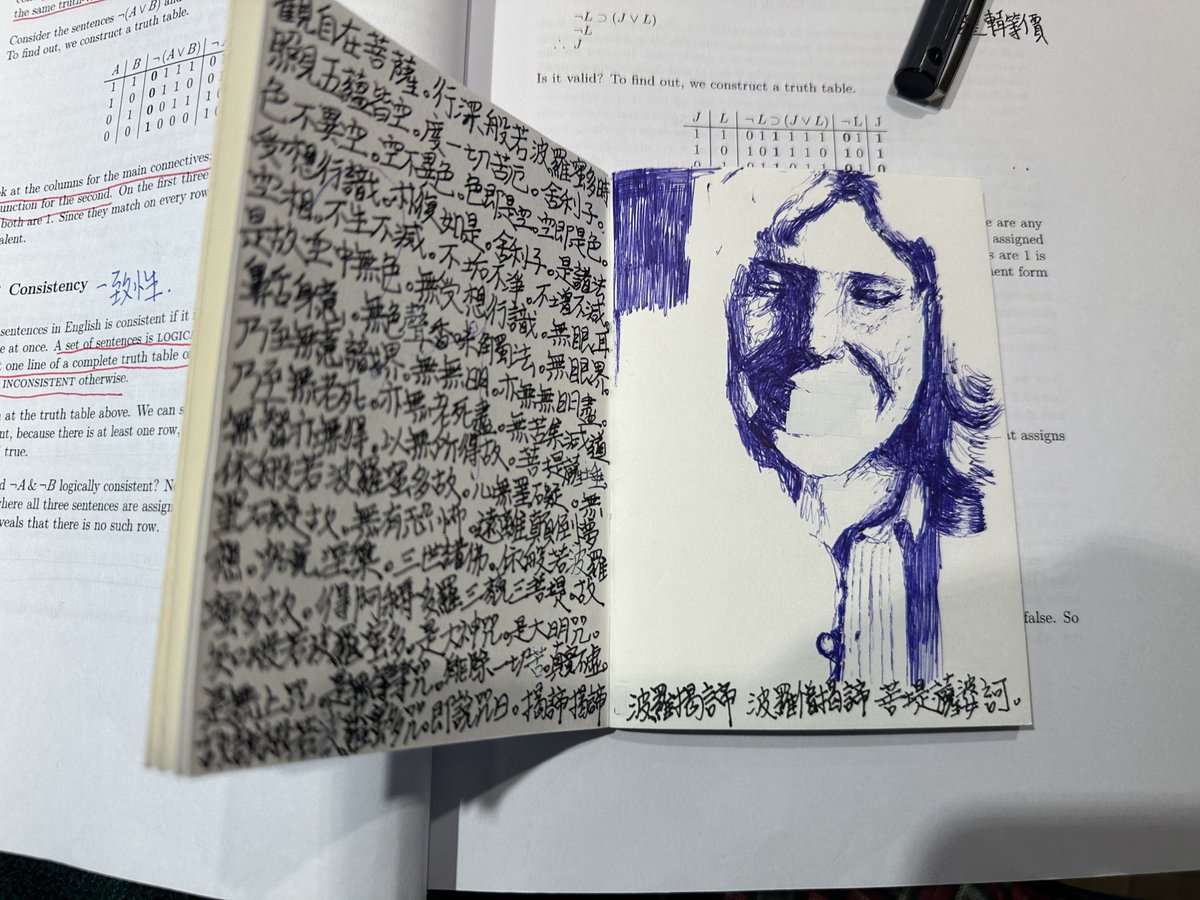 the same truth-
Consider the sentences ¬(A ∨ B) and
To find out, we construct a truth table.
A B ¬ (A ∨ B) ¬
1 1 0 1 1 1 0
1 0 0 1 1 0
0 1 0 0 1 1
0 0 1 0 0 0 1
at the columns for the main connectives;
function for the second. On the first three
both are 1. Since they match on every row
Consistency 一致性.
sentences in English is consistent if it
at once. A set of sentences is LOGIC
one line of a complete truth table
INCONSISTENT otherwise.
at the truth table above. We can
because there is at least one row,
true.
¬A & ¬B logically consistent?
where all three sentences are
reveals that there is no such row.
觀自在菩薩。行深般若波羅蜜多時
照見五蘊皆空。度一切苦厄。舍利子。
色不異空。空不異色。色即是空。空即是色。
受想行識。亦復如是。舍利子。是諸法
空相。不生不滅。不垢不淨。不增不減。
是故空中無色。無受想行識。無眼耳
鼻舌身意。無色聲香味觸法。無眼界。
乃至無意識界。無無明。亦無無明盡。
乃至無老死。亦無老死盡。無苦集滅道
無智亦無得。以無所得故。菩提薩埵
依般若波羅蜜多故。心無罣礙。無
罣礙故。無有恐怖。遠離顛倒夢
想。究竟涅槃。三世諸佛。依般若波羅
蜜多故。得阿耨多羅三藐三菩提。故
知般若波羅蜜多。是大神咒。是大明咒。
是無上咒。是無等等咒。能除一切苦。真實不虛。
咒。即說咒曰。揭諦揭諦
波羅揭諦 波羅僧揭諦 菩提薩婆訶。
¬L ⊃ (J ∨ L)
¬L
∴ J
輯等價
Is it valid? To find out, we construct a truth table.
J L ¬ L ⊃ (J ∨ L) ¬ L J
1 1 0 1 1 1 1 1 0 1 1
1 0 1 0 1 1 1 0 1 0 1
are any
assigned
are 1 is
form
assigns
false. So